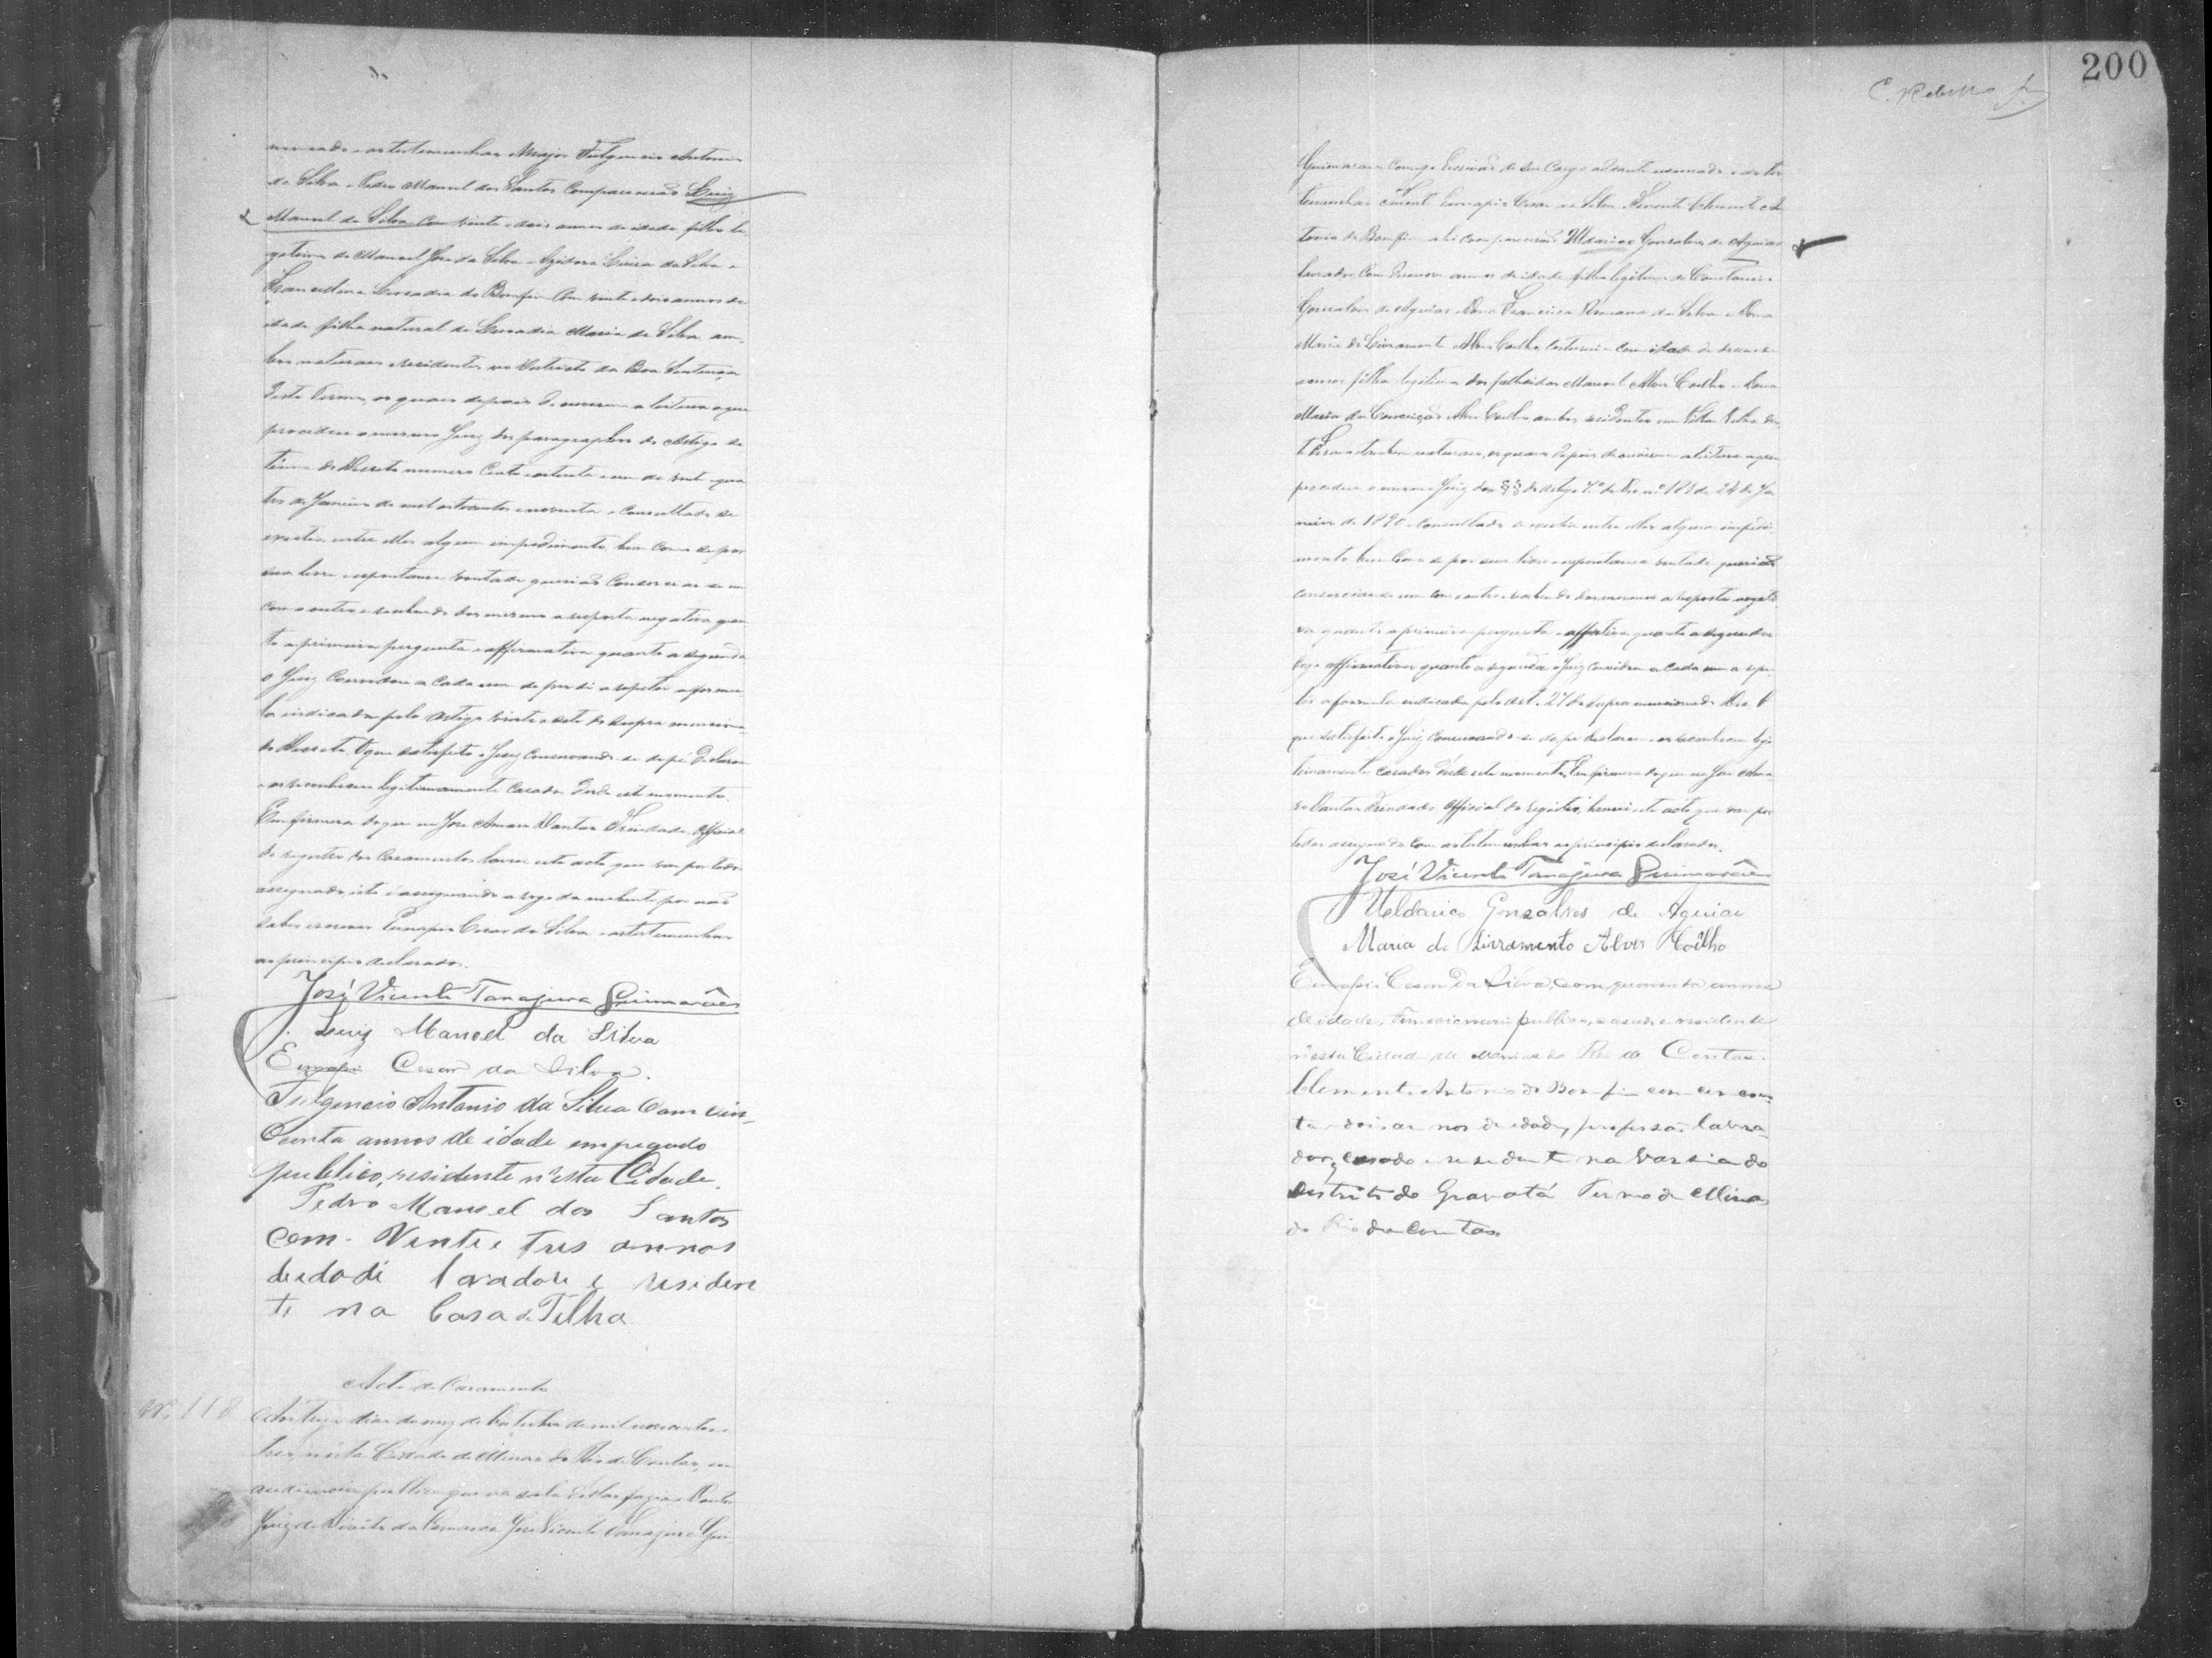 meado e as testemunhas Major Fulgencio Antonio
da Silva e Pedro Manoel dos Santos Comparecerão Luiz
Manoel da Silva com vinte e dois annos de idade filho le
gitimo de Manoel José da Silva e Izidora Luiza da Silva e
Leocadia do Bomfim com vinte e dois annos de
idade filha natural de Leocadia Maria da Silva am
bos naturaes e residentes no Districto da Boa Sentença
deste Termo, os quaes depois de ouvirem a leitura a que
procedeu o mesmo Juiz dos paragraphos do Artigo se
timo do Decreto numero Cento e oitenta e um de vinte e qua
tro de Janeiro de mil oitocentos e noventa e consultado se
existia entre elles algum impedimento bem como se por
sua livre e espontanea vontade querião Consorciar-se um
com o outro e recebendo dos mesmos a resposta negativa quan
to a primeira pergunta e affirmativa quanto a segunda
o Juiz Convidou a Cada um de per si a repetir a formu
la indicada pelo Artigo vinte e sete do supra menciona
do Decreto. O que satisfeito o Juiz Conservando-se de pé Declarou
e os reconheceu legitimamente Casados desde este momento.
Em firmesa do que eu José Amaro Dantas Trindade, Official
do registro dos Casamentos lavrei este acto que vae por todos
assignado, isto é assignando a rogo da nubente por não
saber escrever Eunapio Cesar da Silva e as testemunhas
ao principio declarados.
José Vicente Tanajura Guimarães
Luiz Manoel da Silva
Eunapio Cesar da Silva.
Fulgencio Antonio da Silva Com cin-
coenta annos de idade empregado
publico, residente n'esta Cidade.
Pedro Manoel dos Santos
com Vinte e tres annos
de idade lavrador e residen
te na Casa de Telha
Acto de Casamento
N. 118 Aos treze dias do mez de Outubro de mil novecentos e
tres, nesta Cidade de Minas do Rio de Contas, em
audiencia publica que na sala dellas fazia o Doutor
Juiz de Direito da Comarca José Vicente Tanajura Gui
200
C. Rebello
Guimarães Comigo Escrivão de seu Cargo adiante nomeado e as tes
temunhas Eunapio Cesar da Silva e Tenente Clemente An
tonio do Bomfim ahi compareceram Uldarico Gonsalves de Aguiar
lavrador Com desenove annos de idade filho legitimo de Constancio
Gonsalves de Aguiar e Dona Francisca Romana da Silva e Dona
Maria do Livramento Alves Coelho Costureira com idade de
annos filha legitima dos fallecidos Manoel Alves Coelho e Dona
Maria da Conceição Alves Coelho ambos residentes em Villa Velha des
te Termo donde são naturaes, os quaes depois de ouvirem a leitura a que
procedeu o mesmo Juiz dos §§ do Artigo 7º do Dec nº 181 de 24 de Ja
neiro de 1890 e Consultado se existia entre elles algum impedi
mento bem Como se por sua livre e espontanea vontade querião
consorciar-se um com o outro e recebendo dos mesmos a resposta negati
va quanto a primeira pergunta e affativa quanto a segunda
digo affirmativa quanto a segunda o Juiz Convidou a Cada um a repe
tir a formula indicada pelo Art. 27 do supra mencionado Dec O
que satisfeito o Juiz Conservando-se de pé declarou e os reconheceu legi
timamente casados desde este momento. Em firmesa do que eu José Ama
ro Dantas Trindade, Official do registro, lavrei este acto que vae por
todos assignado com as testemunhas ao principio declaradas.
José Vicente Tanajura Guimarães
Uldarico Gonsalves de Aguiar
Maria do Livramento Alves Coêlho
Eunapio Cesar da Silva, com quarenta annos
de idade, funccionario publico, casado e residente
nesta Cidade de Minas do Rio de Contas.
Clemente Antonio do Bomfim com cincoen
ta e dois annos de idade, profissão lavra
dor, casado e residente na Varzia do
distrito do Gravatá Termo de Minas
do Rio de Contas